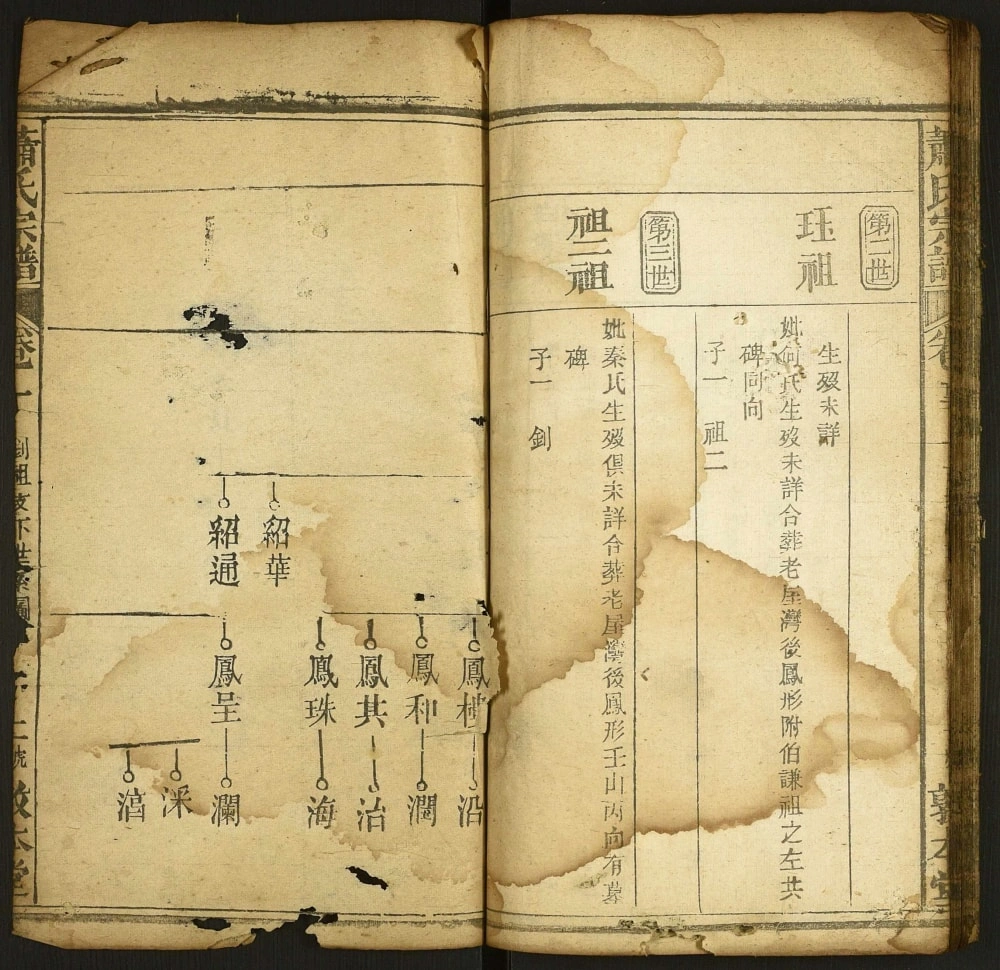 蕭氏宗譜
敦本堂
第二世
珏祖
生歿未詳
妣何氏生歿未詳合葬老屋灣後鳳形附伯謙祖之左共
碑同向
子一 祖二
第三世
祖二祖
妣秦氏生歿俱未詳合葬老屋灣後鳳形壬山丙向有墓
碑
子一 釗
紹華
紹通
鳳
鳳和
鳳共
鳳珠
鳳呈
沿
潤
治
海
瀾
渁
滈
蕭氏宗譜
卷
釗祖支下世系圖
號
敦本堂